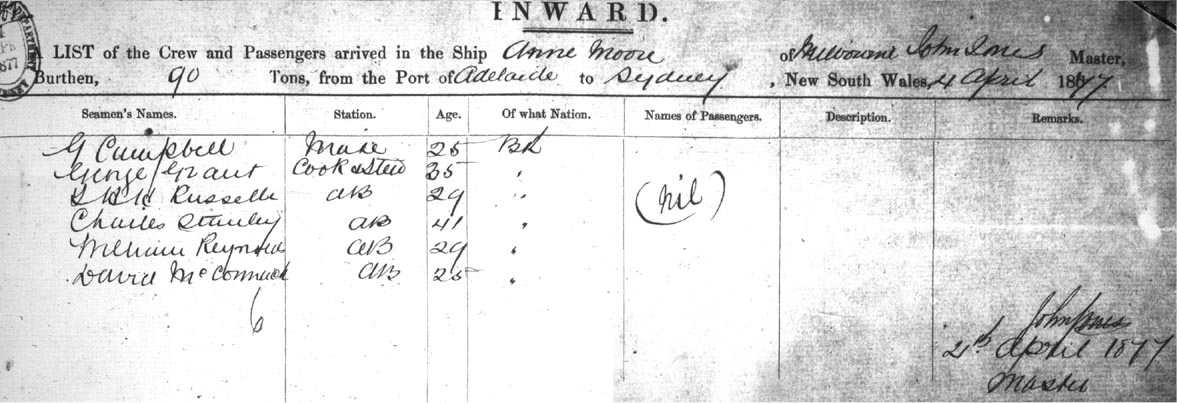 INWARD.
A LIST of the Crew and Passengers arrived in the Ship Anne Moore of Melbourne John Jones Master,
Burthen, 90 Tons, from the Port of Adelaide to Sydney, New South Wales, 4 April 1877
Seamen's Names. Station. Age. Of what Nation. Names of Passengers. Description. Remarks.
G Campbell Mate 25
George Grant Cook & Stew 35 "
Russelle AB 29 "
Charles Stanley AB 41 "
William Reynold AB 29 "
David McCormack AB 25 "
(nil)
6
John Jones
April 1877
Master
1877